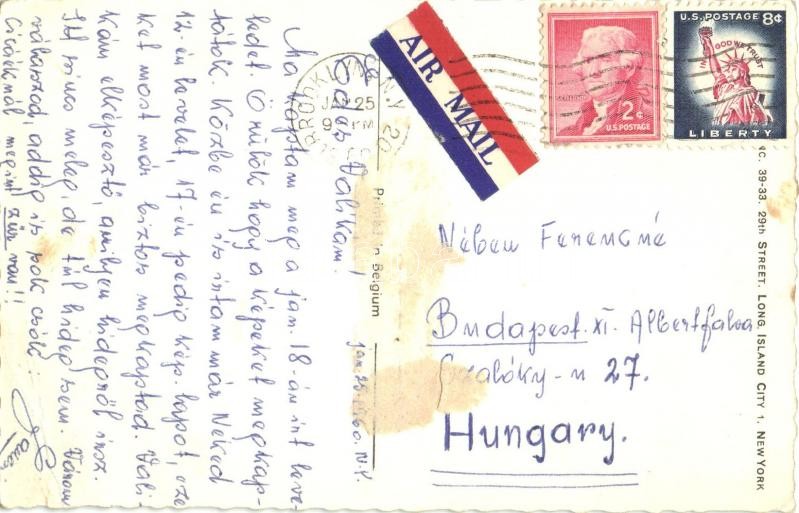 AIR MAIL
BROOKLYN N.Y. 20
25
PM
2¢
U.S. POSTAGE
U.S. POSTAGE 8¢
IN GOD WE TRUST
LIBERTY
Jan. 25. 1960. N.Y.
Édes Valikám!
Ma kaptam meg a jan. 18-án írt leve-
ledet. Örülök hogy a képeket megkap-
tátok. Közbe én is írtam már Neked
12. én levelet, 17-én pedig kép. lapot, eze
ket most már biztos megkaptad. Vali-
kám elképesztő, amilyen hidegről írsz.
Itt nincs meleg, de túl hideg sem. Várom
válaszod, addig is sok csók:
Ciciéknél megint zűr van!!
Printed in Belgium
Ferencné
Budapest. XI. Albertfalva
27.
Hungary.
NC. 39-33. 29TH STREET. LONG ISLAND CITY 1. NEW YORK